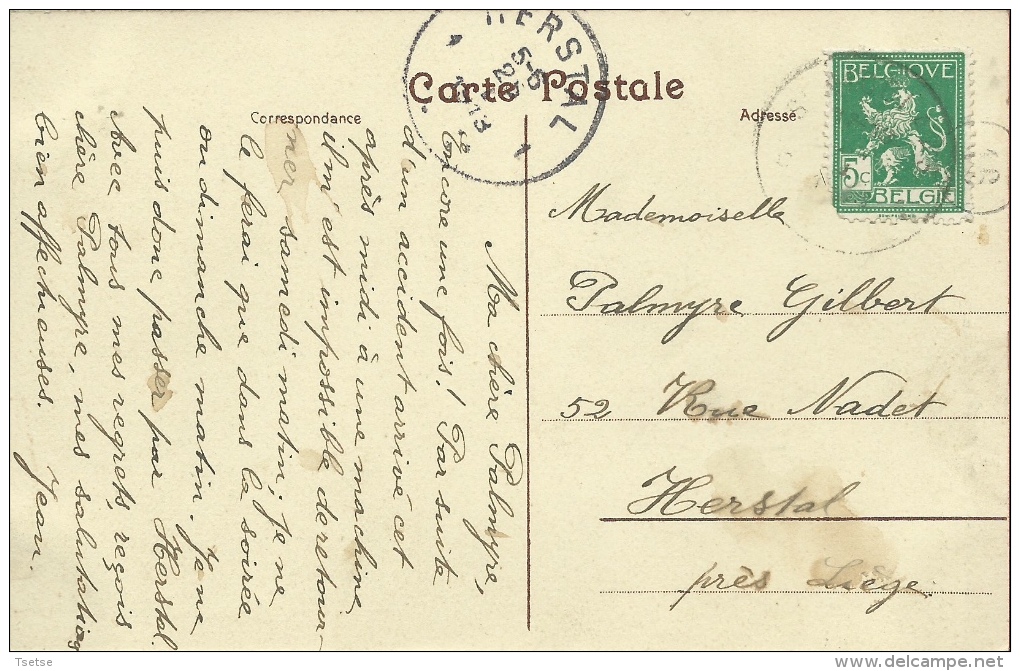 Carte Postale
Correspondance
Adresse
HERSTAL
5-6
BELGIQUE
5c
BELGIE
Ma chère Palmyre,
Encore une fois! Par suite
d'un accident arrivé cet
après midi à une machine,
il m'est impossible de retour-
ner samedi matin; je ne
le ferai que dans la soirée
ou dimanche matin. Je ne
puis donc passer par Herstal.
Avec tous mes regrets, reçois
chère Palmyre, mes salutations
bien affectueuses.
Jean.
Mademoiselle
Palmyre Gilbert
52 Rue Nadet
Herstal
près Liège
Tsetse
delcampe.net